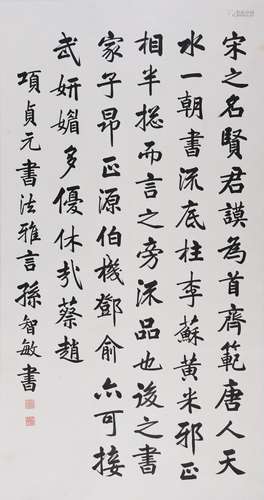 宋之名賢君謨為首齊範唐人天
水一朝書流底柱李蘇黃米邪正
相半摠而言之旁流品也後之書
家子昂正源伯機鄧俞亦可接
武妍媚多優休哉蔡趙
項貞元書法雅言孫智敏書